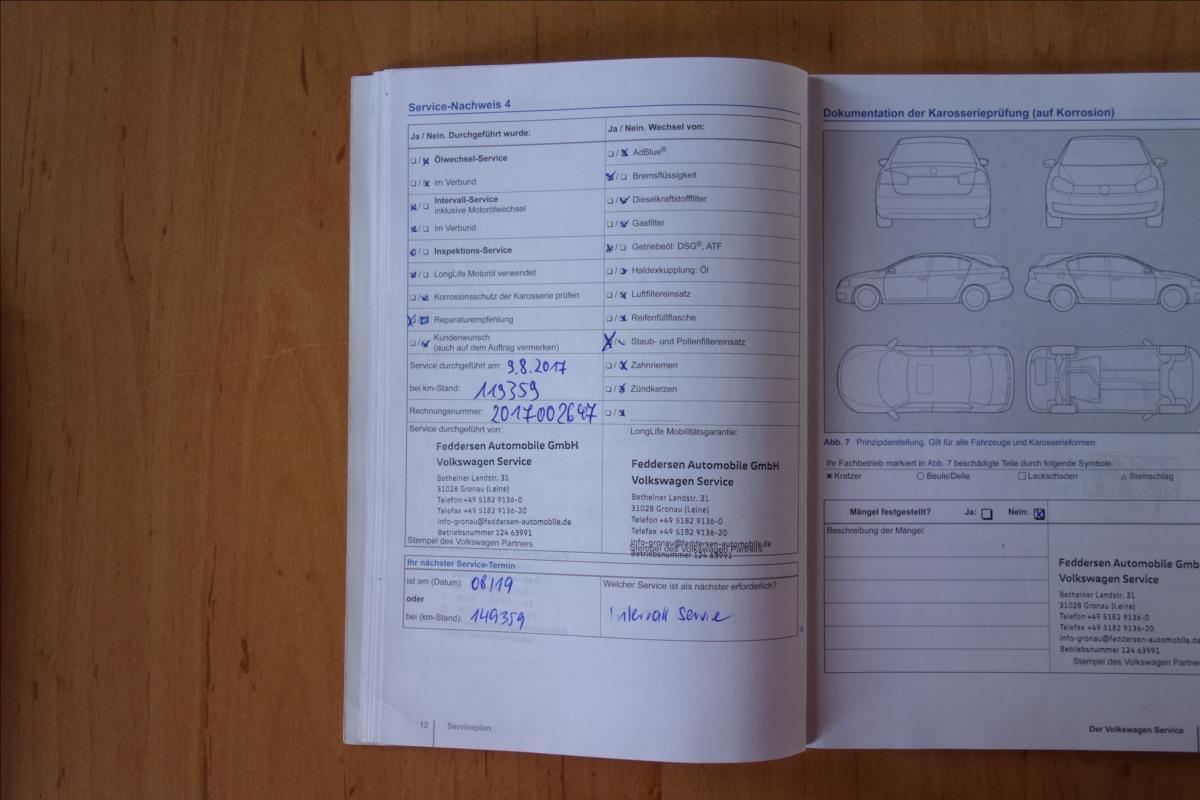 Service-Nachweis 4
Ja / Nein. Durchgeführt wurde:
❏/❏ Ölwechsel-Service
❏/❏ im Verbund
❏/❏ Intervall-Service
inklusive Motorölwechsel
❏/❏ im Verbund
❏/❏ Inspektions-Service
❏/❏ LongLife Motoröl verwendet
❏/❏ Korrosionsschutz der Karosserie prüfen
❏/❏ Reparaturempfehlung
❏/❏ Kundenwunsch
(auch auf dem Auftrag vermerken)
Service durchgeführt am: 9.8.2017
bei km-Stand: 119359
Rechnungsnummer: 2017002647
Service durchgeführt von:
Feddersen Automobile GmbH
Volkswagen Service
Betheiner Landstr. 31
31028 Gronau (Leine)
Telefon +49 5182 9136-0
Telefax +49 5182 9136-20
info-gronau@feddersen-automobile.de
Betriebsnummer 124 63991
Stempel des Volkswagen Partners
Ja / Nein. Wechsel von:
❏/❏ AdBlue®
❏/❏ Bremsflüssigkeit
❏/❏ Dieselkraftstofffilter
❏/❏ Gasfilter
❏/❏ Getriebeöl: DSG®, ATF
❏/❏ Haldexkupplung: Öl
❏/❏ Luftfiltereinsatz
❏/❏ Reifenfüllflasche
❏/❏ Staub- und Pollenfiltereinsatz
❏/❏ Zahnriemen
❏/❏ Zündkerzen
❏/❏
LongLife Mobilitätsgarantie:
Feddersen Automobile GmbH
Volkswagen Service
Betheiner Landstr. 31
31028 Gronau (Leine)
Telefon +49 5182 9136-0
Telefax +49 5182 9136-20
info-gronau@feddersen-automobile.de
Stempel des Volkswagen Partners
Betriebsnummer 124 63991
Ihr nächster Service-Termin
ist am (Datum): 08/19
oder
bei (km-Stand): 149359
Welcher Service ist als nächster erforderlich?
Intervall Servie
12 Serviceplan
Dokumentation der Karosserieprüfung (auf Korrosion)
Abb. 7 Prinzipdarstellung. Gilt für alle Fahrzeuge und Karosserieformen.
Ihr Fachbetrieb markiert in Abb. 7 beschädigte Teile durch folgende Symbole:
✖ Kratzer ○ Beule/Delle □ Lackschaden △ Steinschlag
Mängel festgestellt? Ja: ❏ Nein: ☒
Beschreibung der Mängel:
Feddersen Automobile Gmb
Volkswagen Service
Betheiner Landstr. 31
31028 Gronau (Leine)
Telefon +49 5182 9136-0
Telefax +49 5182 9136-20
info-gronau@feddersen-automobile.de
Betriebsnummer 124 63991
Stempel des Volkswagen Partne
Der Volkswagen Service